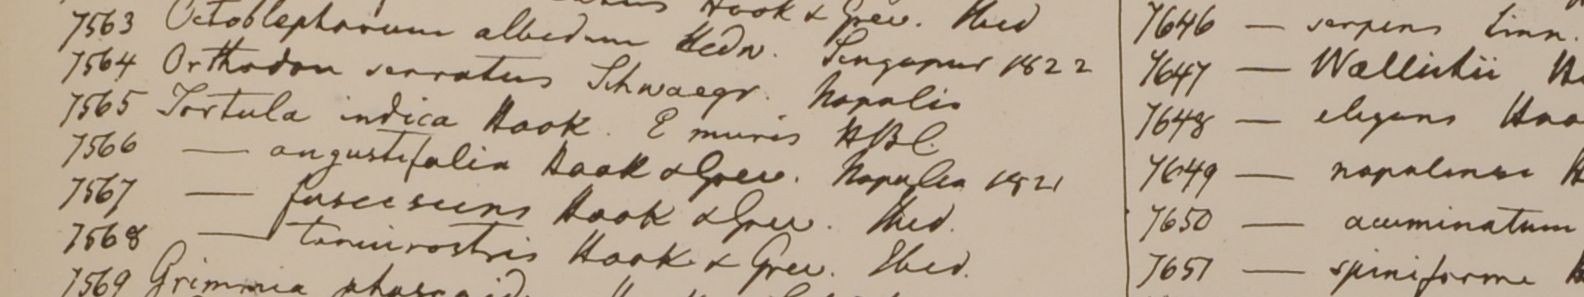 Hook & Grev. Ibid
7563 Octoblepharum albidum Hedw. Singapur 1822
7564 Orthodon serratus Schwaegr. Napalia
7565 Tortula indica Hook. E muris HBC.
7566 — angustifolia Hook & Grev. Napalia 1821
7567 — fuscescens Hook & Grev. Ibid.
7568 — tenuirostris Hook & Grev. Ibid.
7569 Grimmia
7646 — serpens Linn.
7647 — Wallichii
7648 — elegans Hoo
7649 — napalense H
7650 — acuminatum
7651 — spiniforme H